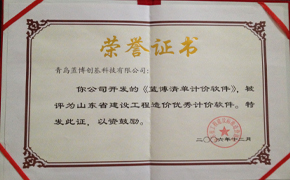 荣誉证书
青岛蓝博创基科技有限公司：
你公司开发的《蓝博清单计价软件》，被
评为山东省建设工程造价优秀计价软件。特
发此证，以资鼓励。
二〇〇六年十二月